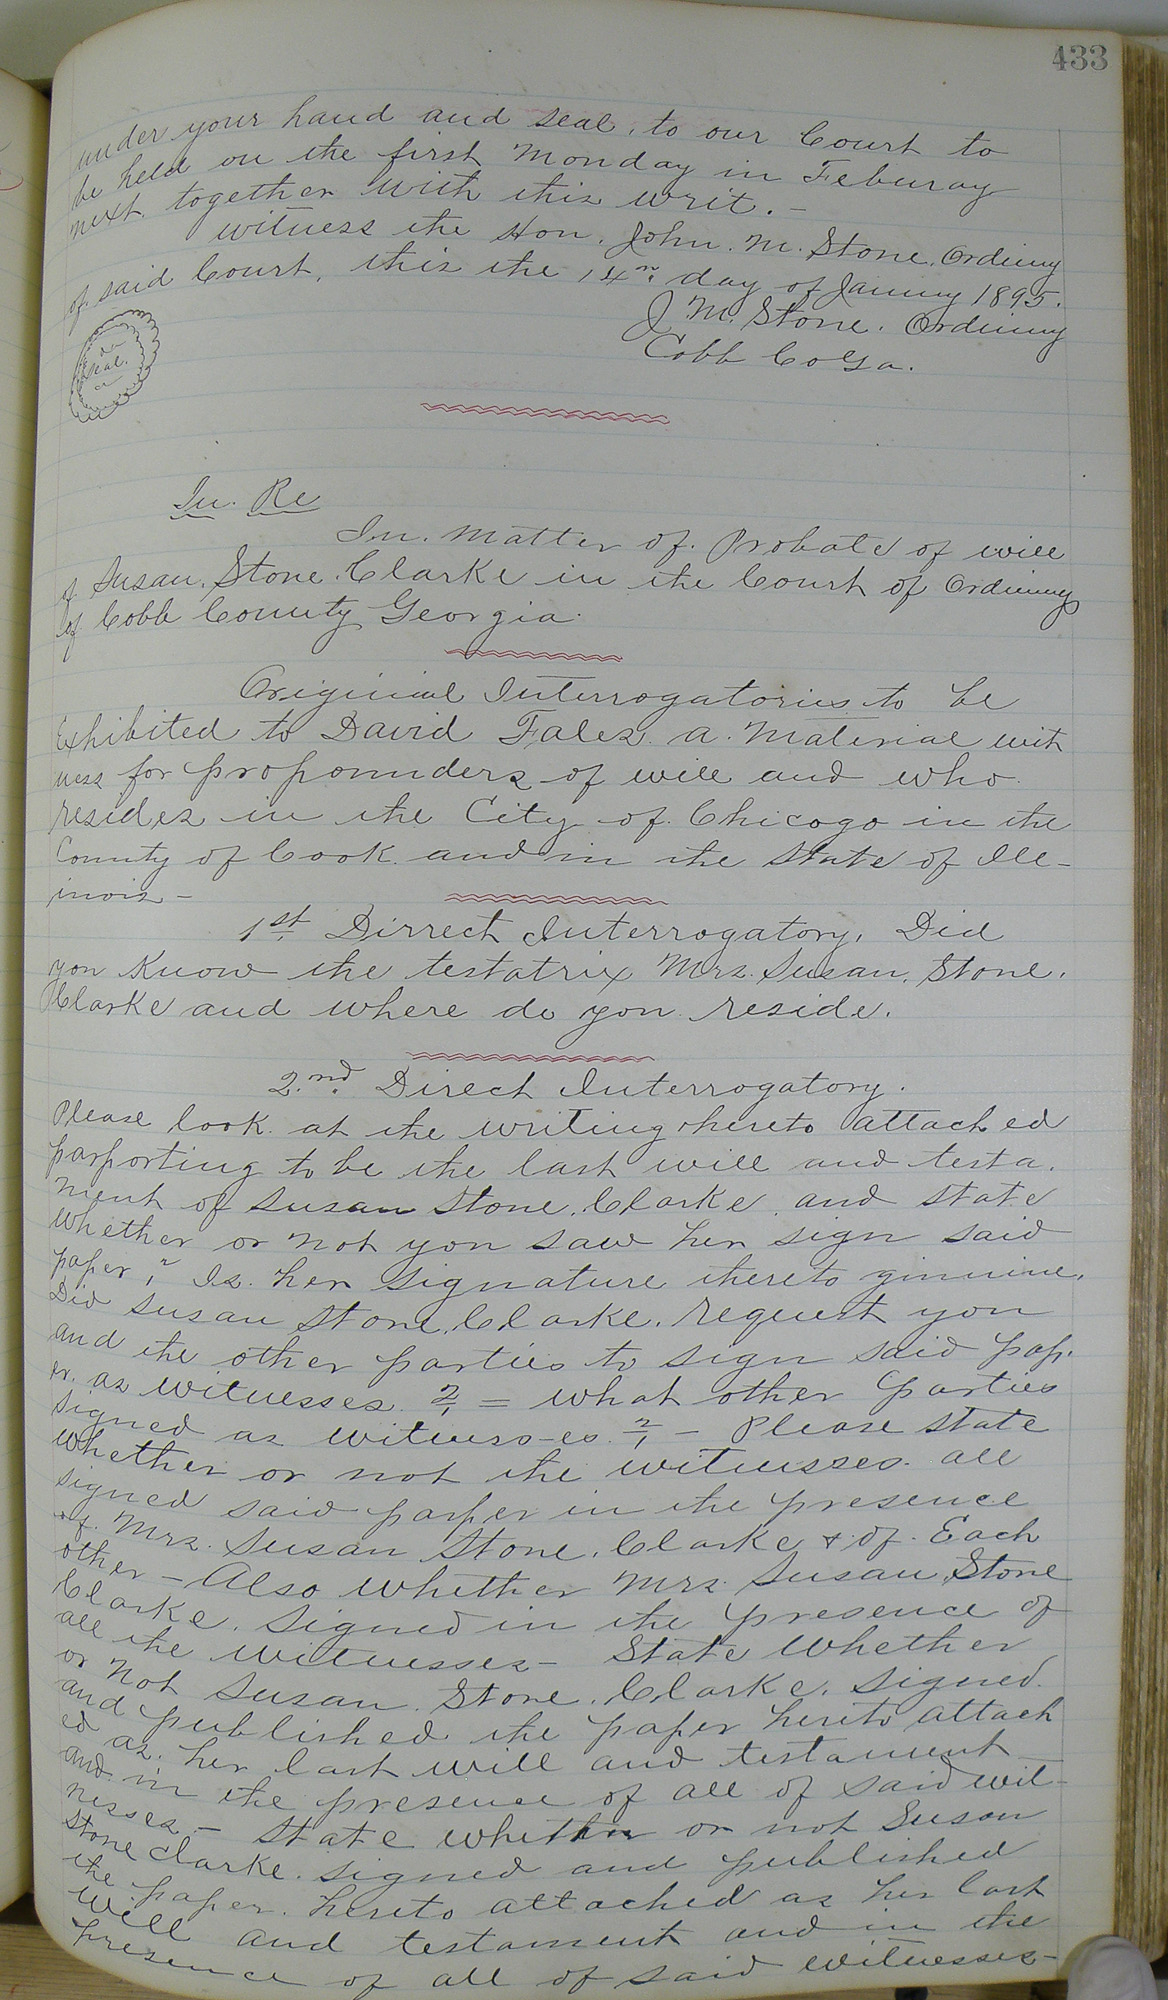 433
under your hand and seal, to our Court to
be held on the first Monday in Feburay
next. together with this writ. –
witness the Hon. John. M. Stone. Ordinry
of said Court, this the 14th day of Janury 1895.
J. M. Stone. Ordinry
Cobb Co Ga.
Seal.
In. Re
In. Matter of. Probate of will
of Susan. Stone. Clarke in the Court of Ordinry
of Cobb County Georgia.
Original Interrogatories to be
Exhibited to David Fales. a. Material wit
ness for propounders of will and who
resides in the City of Chicogo in the
County of Cook. and in the State of Ill-
inois –
1st Dirrect Interrogatory. Did
you Know the testatrix Mrs. Susan. Stone.
Clarke and where do you reside.
2nd Direct Interrogatory.
Please look at the writing hereto attached
parporting to be the last will and testa.
ment of Susan Stone. Clarke. and state
whether or not you saw her sign said
paper? Is her signature thereto ginuine.
Did Susan Stone. Clarke. request you
and the other parties to sign said pap.
er. as witnesses? = what other parties
signed as witness-es? – Please state
whether or not the witnesses all
signed said paper in the presence
of. Mrs. Susan Stone. Clarke & of. Each
other – Also whether Mrs. Susan Stone
Clarke. Signed in the presence of
all the witnesses – State whether
or not Susan. Stone. Clarke. signed.
and published the paper hereto attach
ed as. her last will and testament
and in the presence of all of said wit-
nesses. – state whether or not Susan
Stone Clarke. signed and published
the paper. hereto attached as her last
will and testament and in the
presence of all of said witnesses –